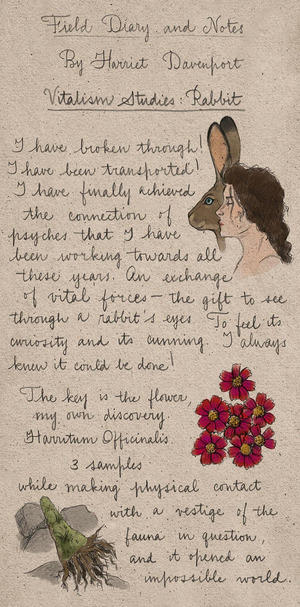 Field Diary and Notes
By Harriet Davenport
Vitalism Studies: Rabbit
I have broken through!
I have been transported!
I have finally achieved
the connection of
psyches that I have
been working towards all
these years. An exchange
of vital forces – the gift to see
through a rabbit's eyes. To feel its
curiosity and its cunning. I always
knew it could be done!
The key is the flower,
my own discovery.
Harritum Officinalis.
3 samples
while making physical contact
with a vestige of the
fauna in question,
and it opened an
impossible world.